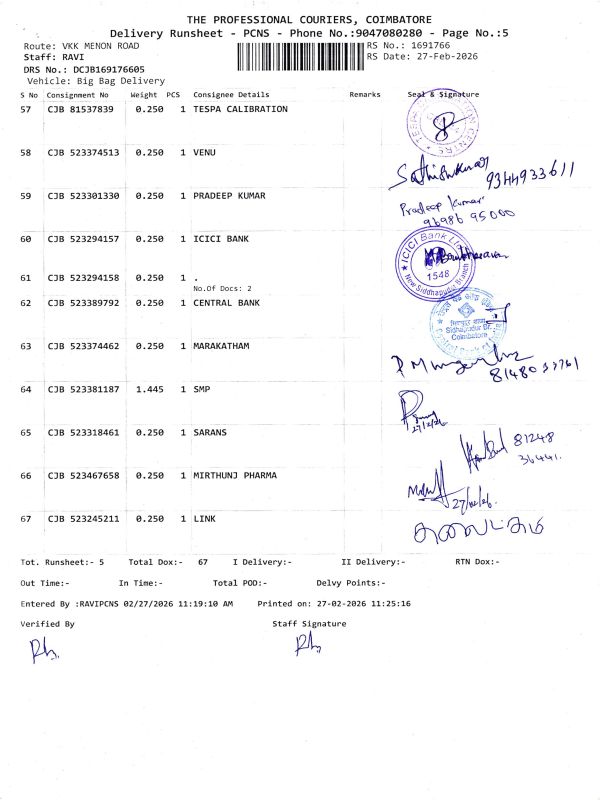 THE PROFESSIONAL COURIERS, COIMBATORE
Delivery Runsheet - PCNS - Phone No.:9047080280 - Page No.:5
Route: VKK MENON ROAD
RS No.: 1691766
Staff: RAVI
RS Date: 27-Feb-2026
DRS No.: DCJB169176605
Vehicle: Big Bag Delivery
S No Consignment No Weight PCS Consignee Details Remarks Seal & Signature
57 CJB 81537839 0.250 1 TESPA CALIBRATION
58 CJB 523374513 0.250 1 VENU
9344933611
59 CJB 523301330 0.250 1 PRADEEP KUMAR
Pradeep Kumar
96986 95000
60 CJB 523294157 0.250 1 ICICI BANK
ICICI Bank
1548
New Siddhapudur Branch
61 CJB 523294158 0.250 1 .
No.Of Docs: 2
62 CJB 523389792 0.250 1 CENTRAL BANK
Sidhapudur Br.
Coimbatore
63 CJB 523374462 0.250 1 MARAKATHAM
64 CJB 523381187 1.445 1 SMP
65 CJB 523318461 0.250 1 SARANS
81248
36441.
66 CJB 523467658 0.250 1 MIRTHUNJ PHARMA
27/02/26.
67 CJB 523245211 0.250 1 LINK
Tot. Runsheet:- 5 Total Dox:- 67 I Delivery:- II Delivery:- RTN Dox:-
Out Time:- In Time:- Total POD:- Delvy Points:-
Entered By :RAVIPCNS 02/27/2026 11:19:10 AM Printed on: 27-02-2026 11:25:16
Verified By Staff Signature